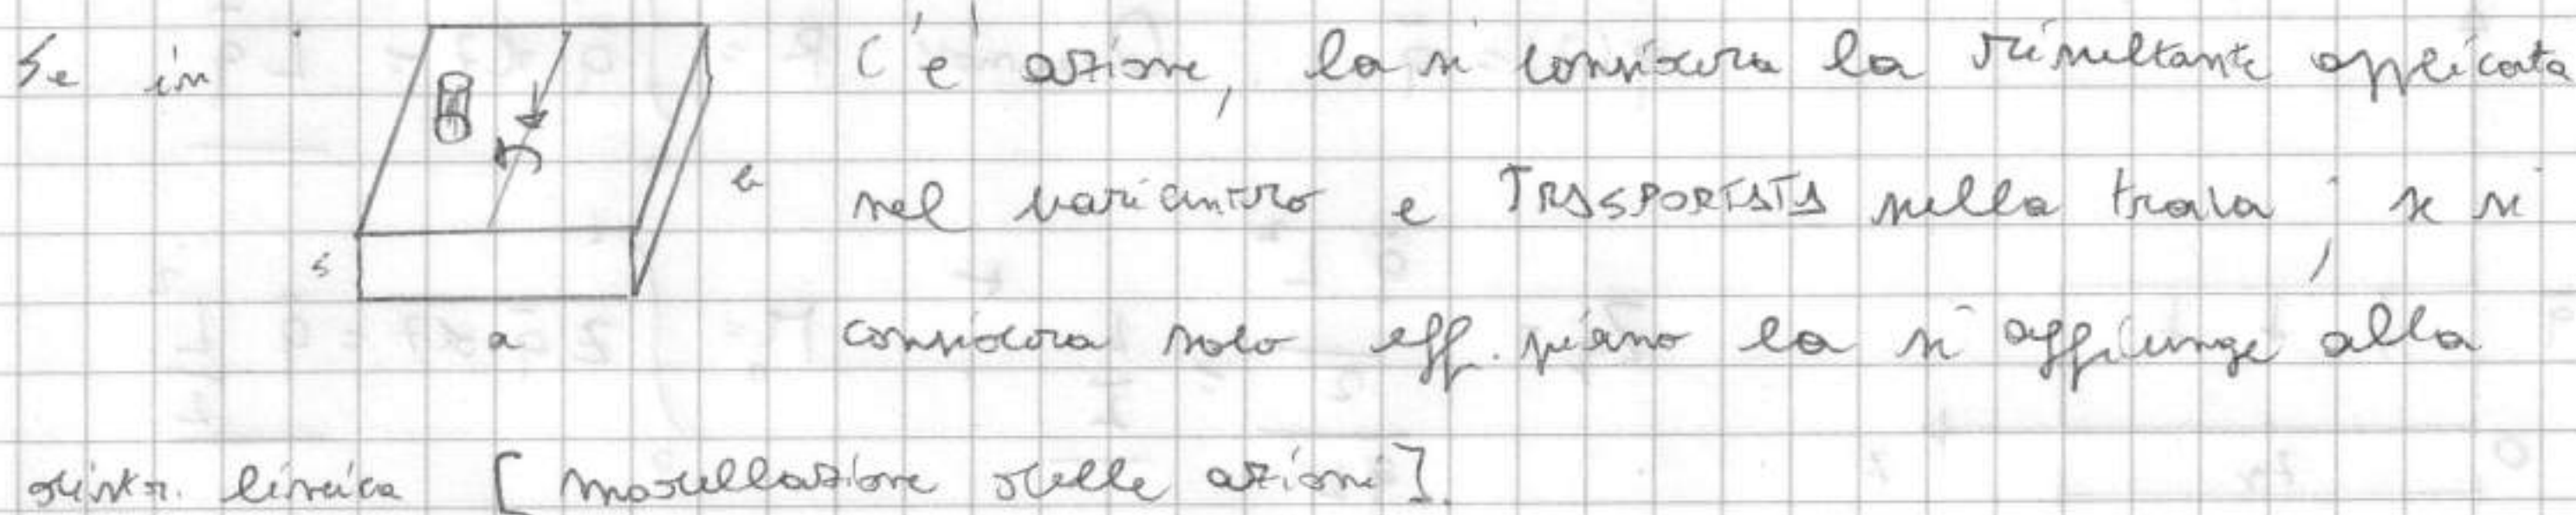 Se in C'è azione, la si considera la risultante applicata
b
nel baricentro e TRASPORTATA nella trave; se si
s
a
considera solo eff. piano la si aggiunge alla
distr. lineica [modellazione delle azioni].